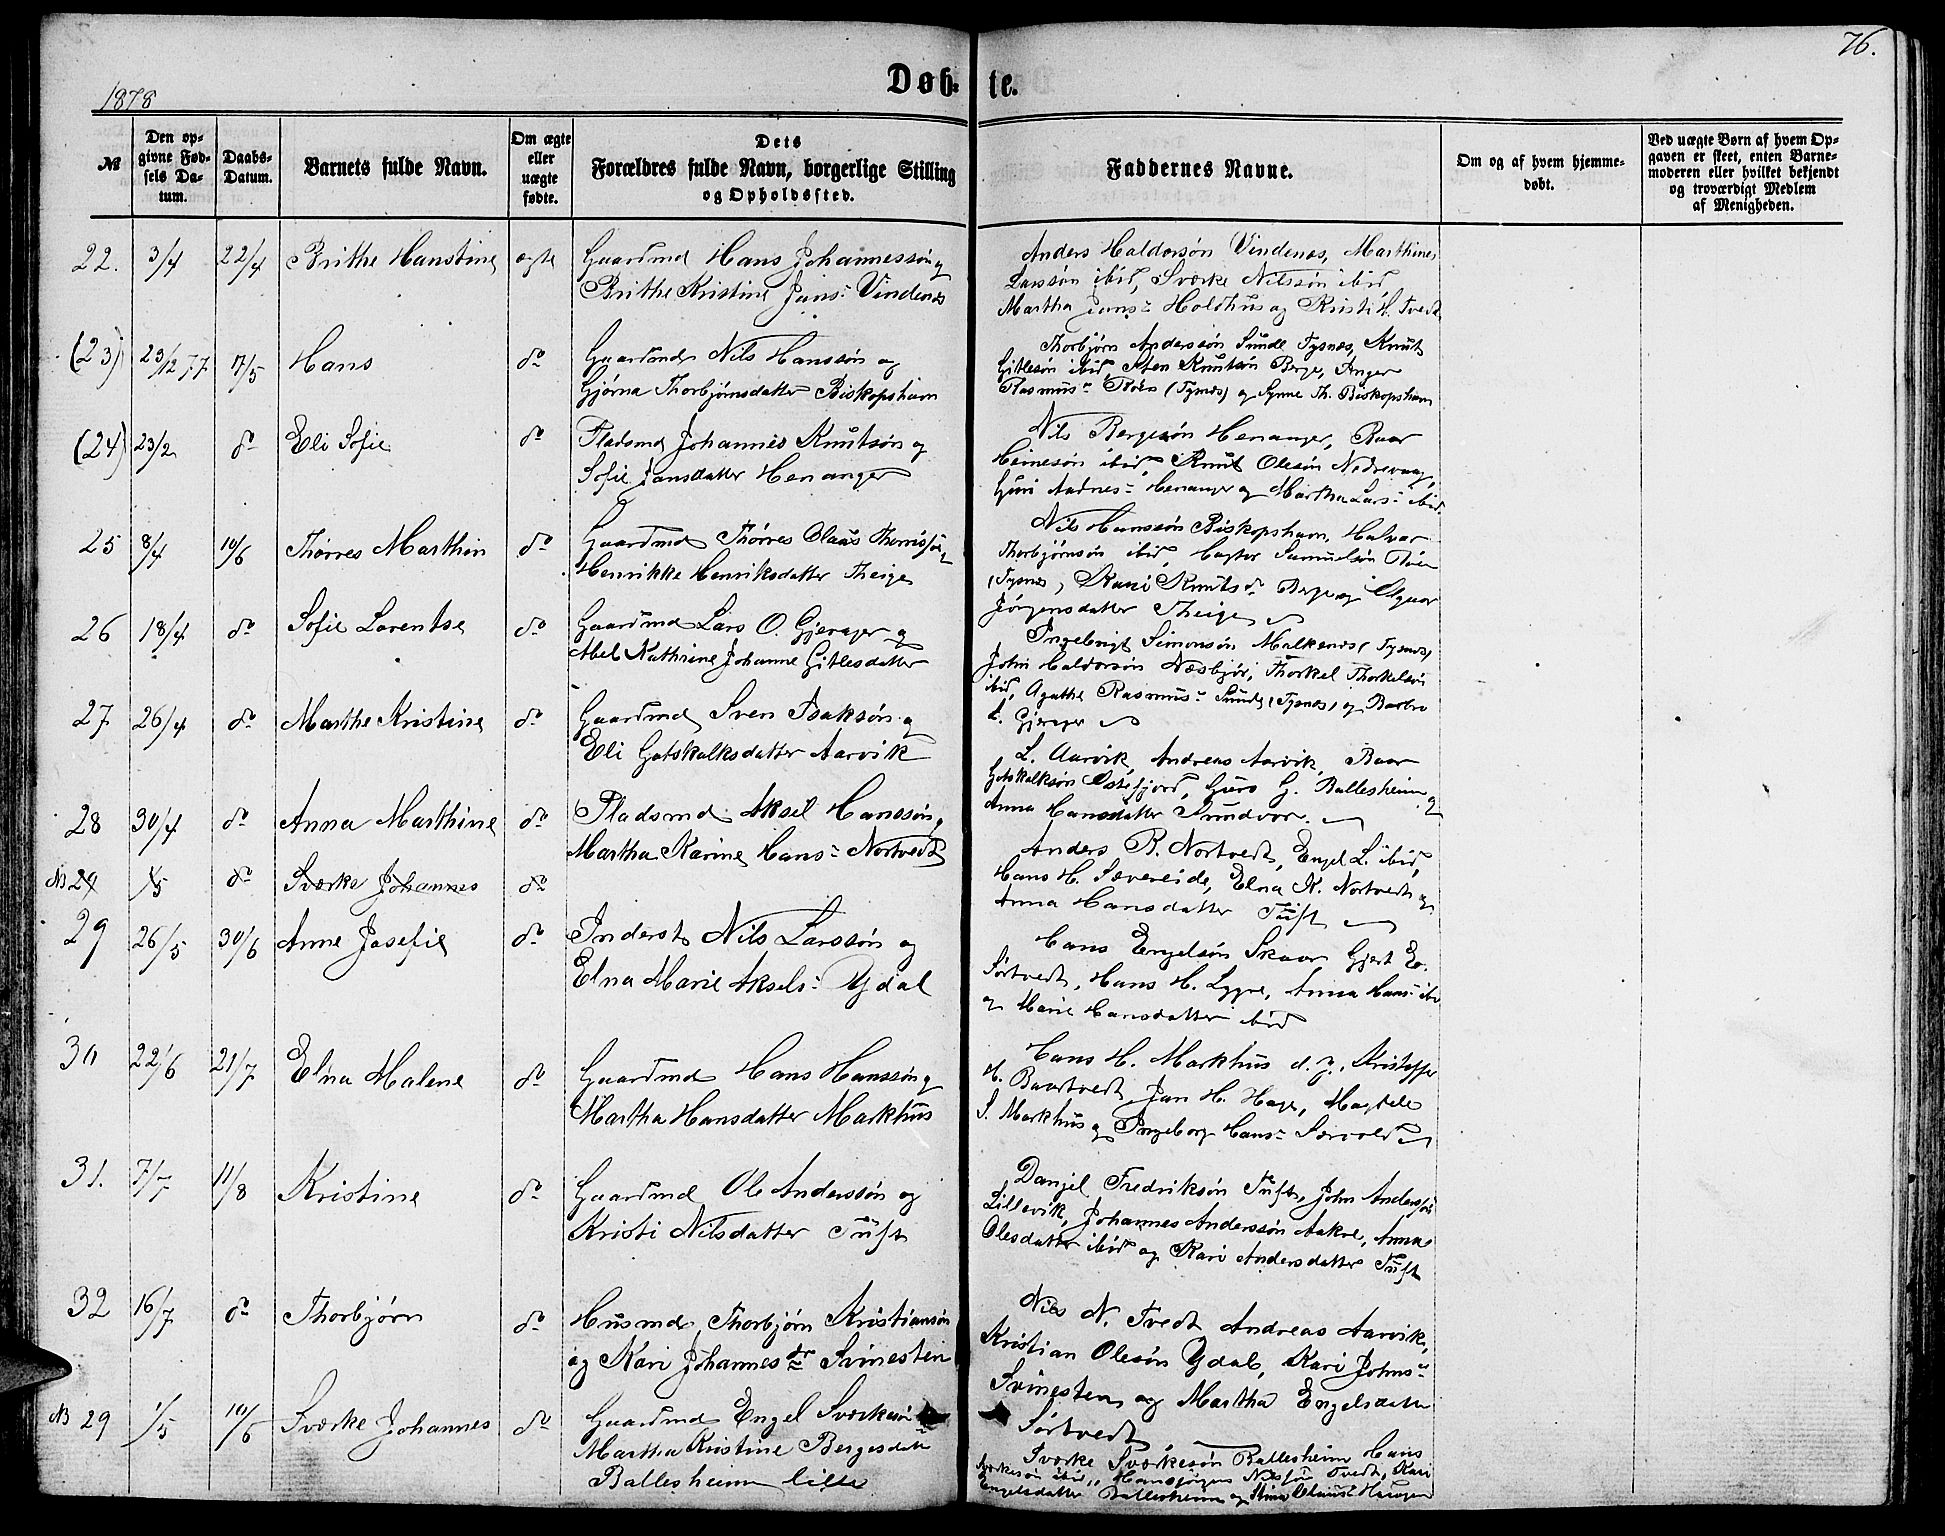 76.
1878
Døb- te.
№
Den opgivne Fødsels Datum.
Daabs-Datum.
Barnets fulde Navn.
Om ægte eller uægte fødte.
Dets Forældres fulde Navn, borgerlige Stilling og Opholdssted.
Faddernes Navne.
Om og af hvem hjemmedøbt.
Ved uægte Børn af hvem Opgaven er skeet, enten Barnemoderen eller hvilket bekjendt og troværdigt Medlem af Menigheden.
22. 3/4 22/4 Brithe Hanstine ægte Gaardmd Hans Johannessøn og
Brithe Kristine Jans- Vindenes
Anders Haldorsøn Vindenes, Marthines
Larssøn ibid, Sværke Nilssøn ibid,
Martha Jans- Holdhus og Kristi H. Tvedt
(23) 23/12 77 7/5 Hans do Gaardmd Nils Hanssøn og
Gjørna Thorbjørnsdatter Biskopshavn
Thorbjørn Anderssøn Sunde Tysnes, Knut
Gitlesøn ibid, Sten Knutsøn Berge, Inger
Rasmus- Fløen (Tysnes) og Synne Th. Biskopshavn
(24) 23/2 do Eli Sofie do Pladsmd Johannes Knutsøn og
Sofie Jansdatter Henanger
Nils Bergesøn Henanger, Baar
Heinesøn ibid, Knut Olesøn Nedrevaag,
Guri Andres- Henanger og Martha Lars- ibid.
25 8/4 10/6 Thorres Marthin do Gaardmd Thorres Olaus Thorrissøn og
Henrikke Henriksdatter Theige
Nils Hanssøn Biskopshavn, Halvar
Thorbjørnsøn ibid, Samuelsøn Fløen
(Tysnes), Kari Knuts dr Berge og
Jørgensdatter Theige
26 18/4 do Sofie Lorentse do Gaardmd Lars O. Gjerager og
Abel Kathrine Johanne Gitlesdatter
Ingebrigt Simonsøn Malkenes (Tysnes),
John Haldorsøn Næsbjør, Thorkel Thorkelsøn
ibid, Agathe Rasmus- Sunde (Tysnes) og Barbro
L. Gjerager
27 26/4 do Marthe Kristine do Gaardmd Sven Isaksøn og
Eli Gotskalksdatter Aarvik
L. Aarvik, Andreas Aarvik, Baar
Gotskalksøn Østefjord, Guro G. Ballesheim og
Anna Hansdatter Sundvor.
28 30/4 do Anna Marthine do Pladsmd Aksel Hanssøn og
Martha Karine Hans- Nortvedt
Anders B. Nortvedt, Engel L. ibid,
Hans H. Sævereide, Elna K. Nortvedt og
Anna Hansdatter Tuft
NB 29 1/5 do Sværke Johannes do
29 26/5 30/6 Anne Josefie do Inderst Nils Larssøn og
Elna Marie Aksels- Ydal
Hans Engelsøn Skaar Gjert E.
Sørtvedt, Hans H. Lygre, Anna Hans- ibid
og Marie Hansdatter ibid
30 22/6 21/7 Elina Malene do Gaardmd Hans Hanssøn og
Martha Hansdatter Markhus
Hans H. Markhus d. y., Kristoffer
H. Baartvedt, Jan H. Hage, Magdele
S. Markhus og Ingeborg Hans- Sævold
31. 7/7 11/8 Kristine do Gaardmd Ole Anderssøn og
Kristi Nilsdatter Tuft
Danjel Fredriksøn Tuft, John Anderssøn
Lillevik, Johannes Anderssøn Aakre, Anna
Olesdatter ibid og Kari Andersdatter Tuft
32 16/7 do Thorbjørn do Husmd Thorbjørn Kristiansøn
og Kari Johannes dr Svinesten
Nils N. Tvedt Andreas Aarvik,
Kristian Olesøn Ydal, Kari Johns-
Svinesten og Martha Engelsdatter
Sørtvedt
NB 29 1/5 10/6 Sværke Johannes do Gaardmd Engel Sværkesøn
Martha Kristine Bergesdatter
Ballesheim lille
Sværke Sværkesøn Ballesheim Hans
Sværkesøn ibid, Hansjørgen Nilssøn Tvedt, Kari
Engelsdatter Ballesheim og Stina